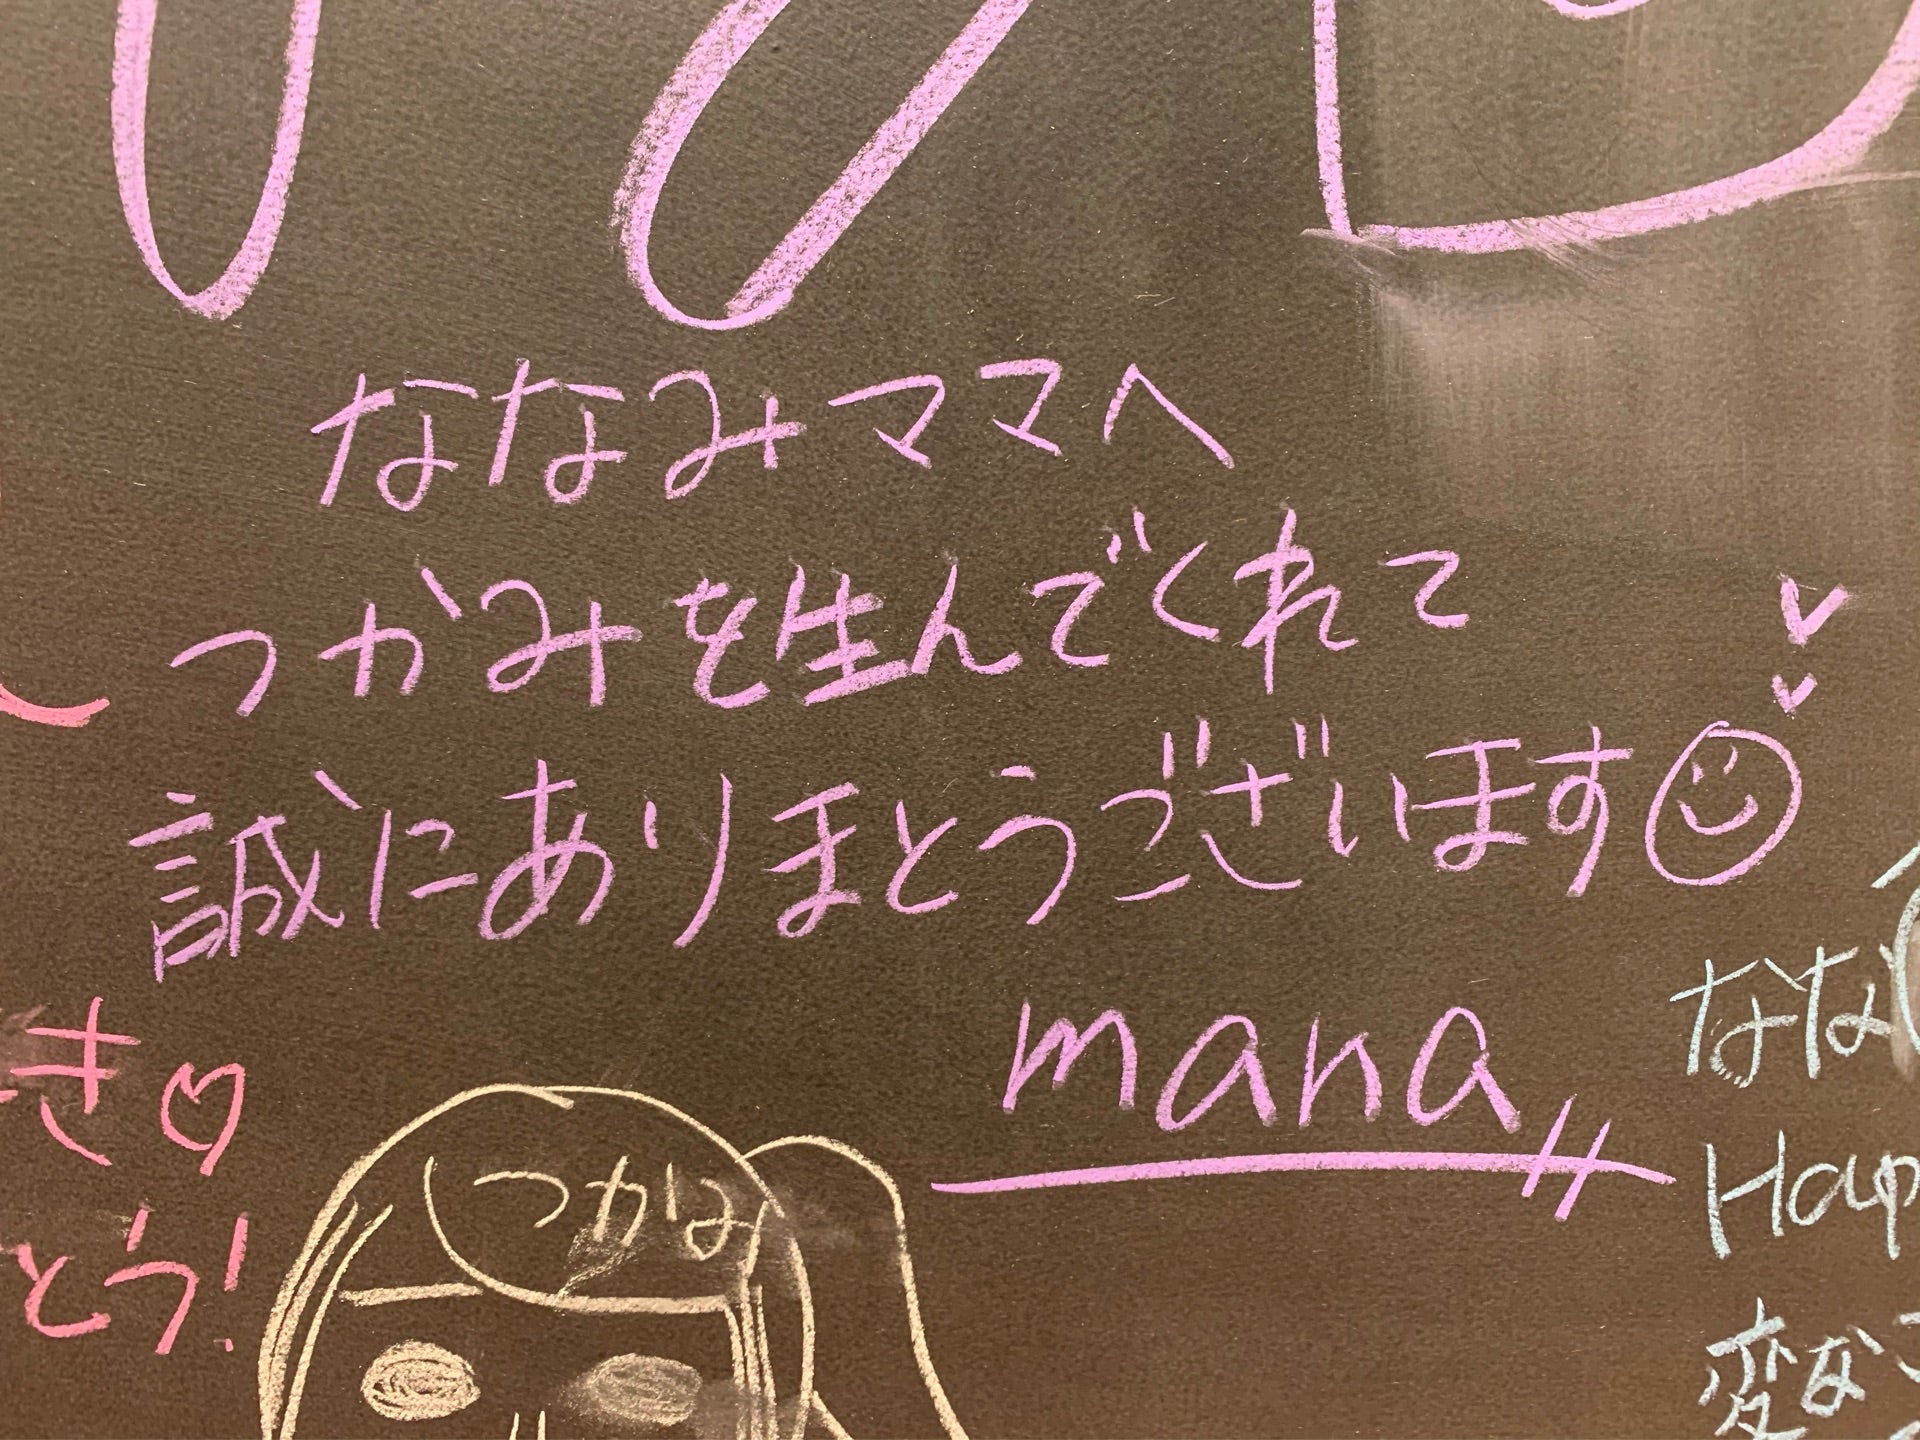 ななみママへ
つかみを生んでくれて
誠にありまとうございます
mana
き
とう!
つかは
なな
Hap
変な